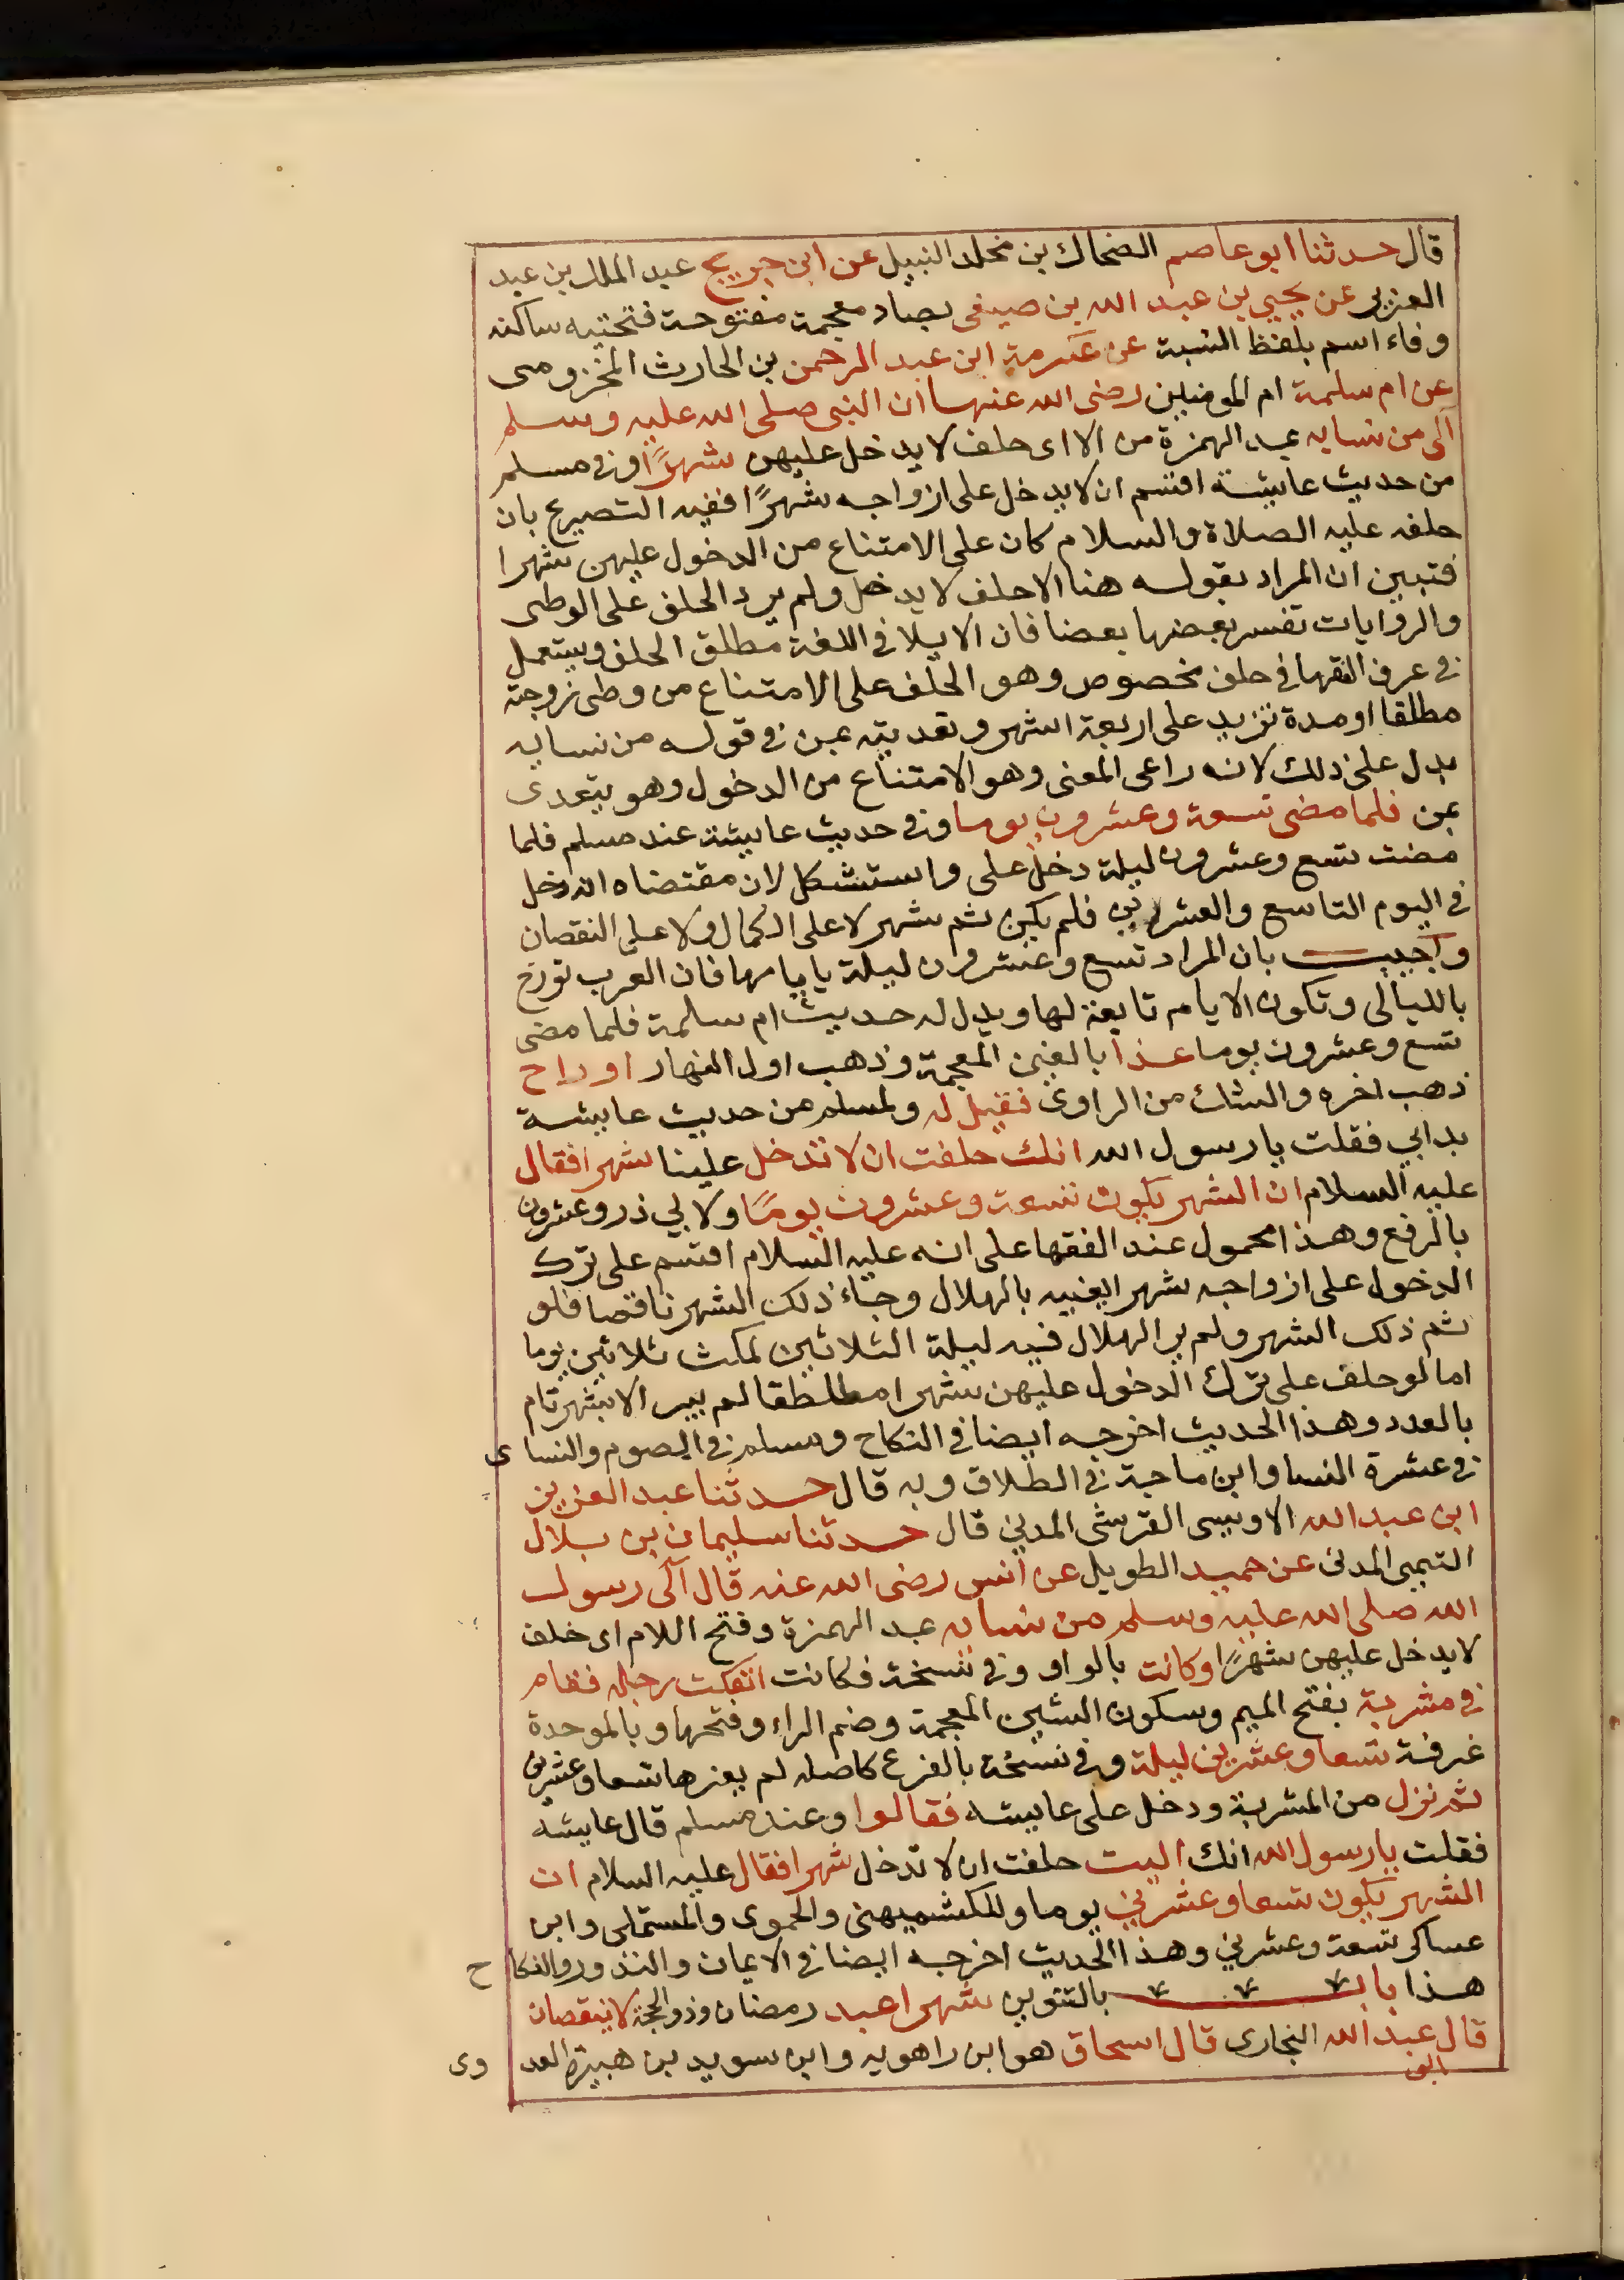 قال حدثنا ابو عاصم الضحاك بن مخلد النبيل عن ابن جريج عبد الملك بن عبد
العزيز عن يحيي بن عبد الله بن صيفى بصاد معجمة مفتوحة فتحتيه ساكنه
وفاء اسم بلفظ النسبة عن عكرمة ابن عبد الرحمن بن الحارث المخزومى
عن ام سلمة ام المومنين رضى الله عنها ان النبى صلى الله عليه وسلم
آلى من نسايه بمد الهمزة من الا اى حلف لا يدخل عليهن شهرًا وفى مسلم
من حديث عايشة اقسم ان لا يدخل على ازواجه شهرًا ففيه التصريح بان
حلفه عليه الصلاة والسلام كان على الامتناع من الدخول عليهن شهرا
فتبين ان المراد بقوله هنا الا حلف لا يدخل ولم يرد الحلف على الوطى
والروايات تفسر بعضها بعضا فان الايلا في اللغة مطلق الحلف ويستعمل
فى عرف الفقها في حلف مخصوص وهو الحلف على الامتناع من وطى زوجته
مطلقا او مدة تزيد على اربعة اشهر وتعديته بمن فى قوله من نسايه
يدل على ذلك لانه راعى المعنى وهو الامتناع من الدخول وهو يتعدى
بمن فلما مضى تسعة وعشرون يوما وفى حديث عايشة عند مسلم فلما
مضت تسع وعشرون ليلة دخل على واستشكل لان مقتضاه انه دخل
في اليوم التاسع والعشرين فلم يكن ثم شهر لا على الكمال ولا على النقصان
واجيب بان المراد تسع وعشرون ليلة بايامها فان العرب تورخ
بالليالى وتكون الايام تابعة لها ويدل له حديث ام سلمة فلما مضى
تسع وعشرون يوما غدا بالغين المعجمة وذهب اول النهار او راح
ذهب اخره والشك من الراوى فقيل له ولمسلم من حديث عايشة
بدابي فقلت يا رسول الله انك حلفت ان لا تدخل علينا شهرا فقال
عليه السلام ان الشهر يكون تسعة وعشرون يومًا ولابي ذر وعشرون
بالرفع وهذا محمول عند الفقها على انه عليه السلام اقسم على ترك
الدخول على ازواجه شهر ابعينه بالهلال وجاء ذلك الشهر ناقصا فلو
تم ذلك الشهر ولم ير الهلال فيه ليلة الثلاثين لمكث ثلاثين يوما
اما لو حلف على ترك الدخول عليهن شهرا مطلطقا لم يبر الا بشهر تام
بالعدد وهذا الحديث اخرجه ايضا في النكاح ومسلم فى الصوم والنساى
فى عشرة النسا وابن ماجة فى الطلاق وبه قال حدثنا عبد العزيز بن
ابن عبد الله الاويسى القرشى المدني قال حدثنا سليمان بن بلال
التيمى المدنى عن حميد الطويل عن انس رضى الله عنه قال آلى رسول
الله صلى الله عليه وسلم من نسايه بمد الهمزة وفتح اللام اى حلف
لا يدخل عليهن شهرًا وكانت بالواو وفى نسخة فكانت انفكت رجله فقام
في مشربة بفتح الميم وسكون الشين المعجمة وضم الراء وفتحها وبالموحدة
غرفة تسعا وعشرين ليلة وفى نسخة بالفرع كاصله لم يعزها تسعا وعشرين
ثم نزل من المشربة ودخل على عايشه فقالوا وعند مسلم قال عايشه
فقلت يا رسول الله انك اليت حلفت ان لا تدخل شهرا فقال عليه السلام ان
الشهر يكون تسعا وعشرين يوما وللكشميهنى والحموى والمستملى وابن
عساكر تسعة وعشرين وهذا الحديث اخرجه ايضا في الايمان والنذور والنكاح
هذا باب بالتنوين شهرا عيد رمضان وذو الحجة لا ينقصان
قال عبد الله البخارى قال اسحاق هو ابن راهويه وابن سويد بن هبيرة العدوى
ابو